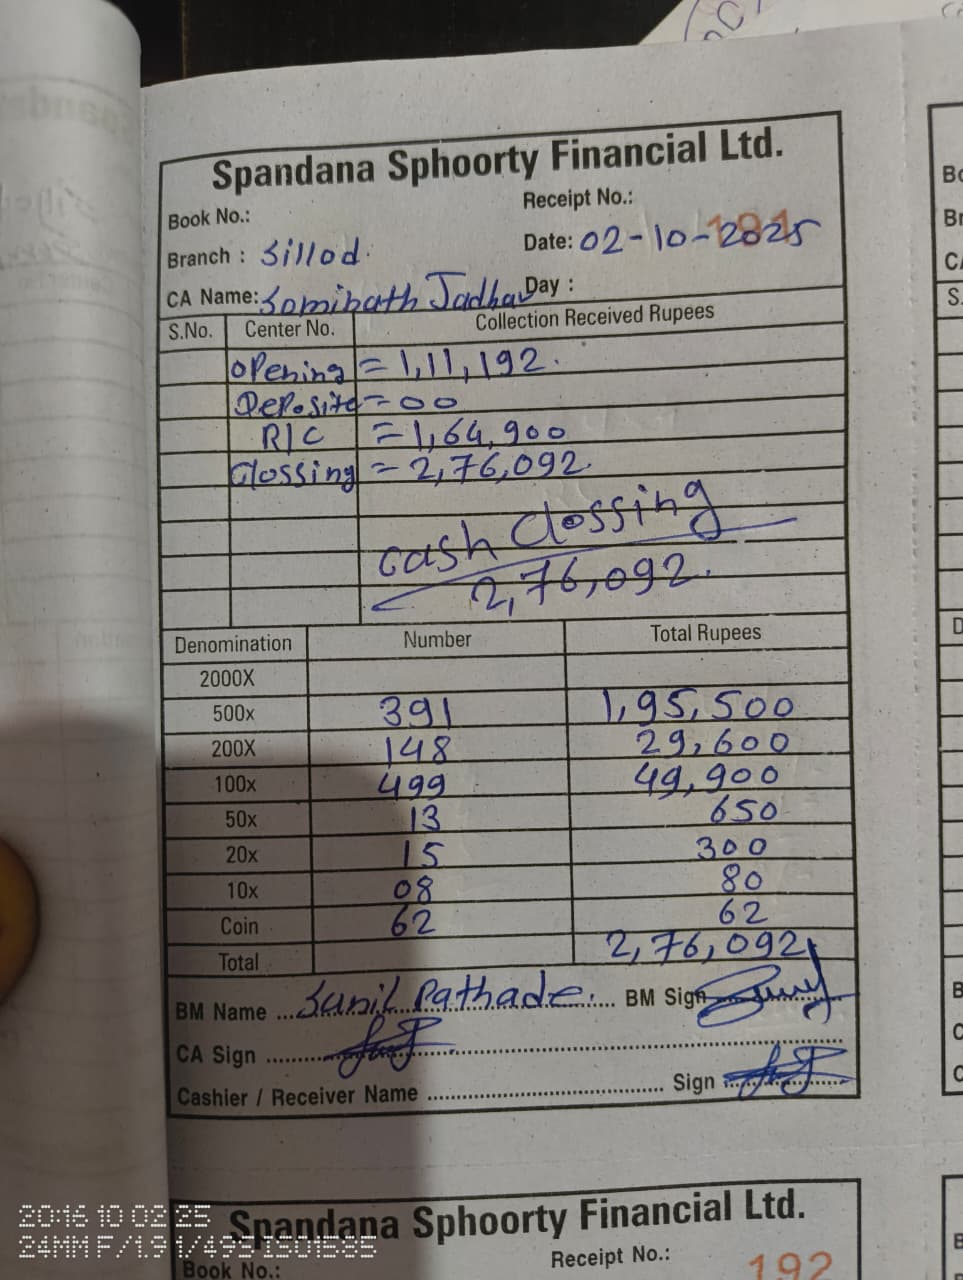 Spandana Sphoorty Financial Ltd.
Book No.:
Receipt No.: 191
Branch : Sillod.
Date: 02-10-2025
CA Name: Sominath Jadhav
Day :
S.No. Center No. Collection Received Rupees
Opening = 1,11,192.
Deposite = 00
R/C = 1,64,900
Clossing = 2,76,092.
cash Clossing
2,76,092.
Denomination Number Total Rupees
2000X
500x 391 1,95,500
200X 148 29,600
100x 499 49,900
50x 13 650
20x 15 300
10x 08 80
Coin 62 62
Total 2,76,092
BM Name ... Sunil Pathade. ... BM Sign
CA Sign
Cashier / Receiver Name ... Sign
Spandana Sphoorty Financial Ltd.
Book No.:
Receipt No.: 192
20:16 10 02 25
24MM F/1.9 1/49S ISO1585